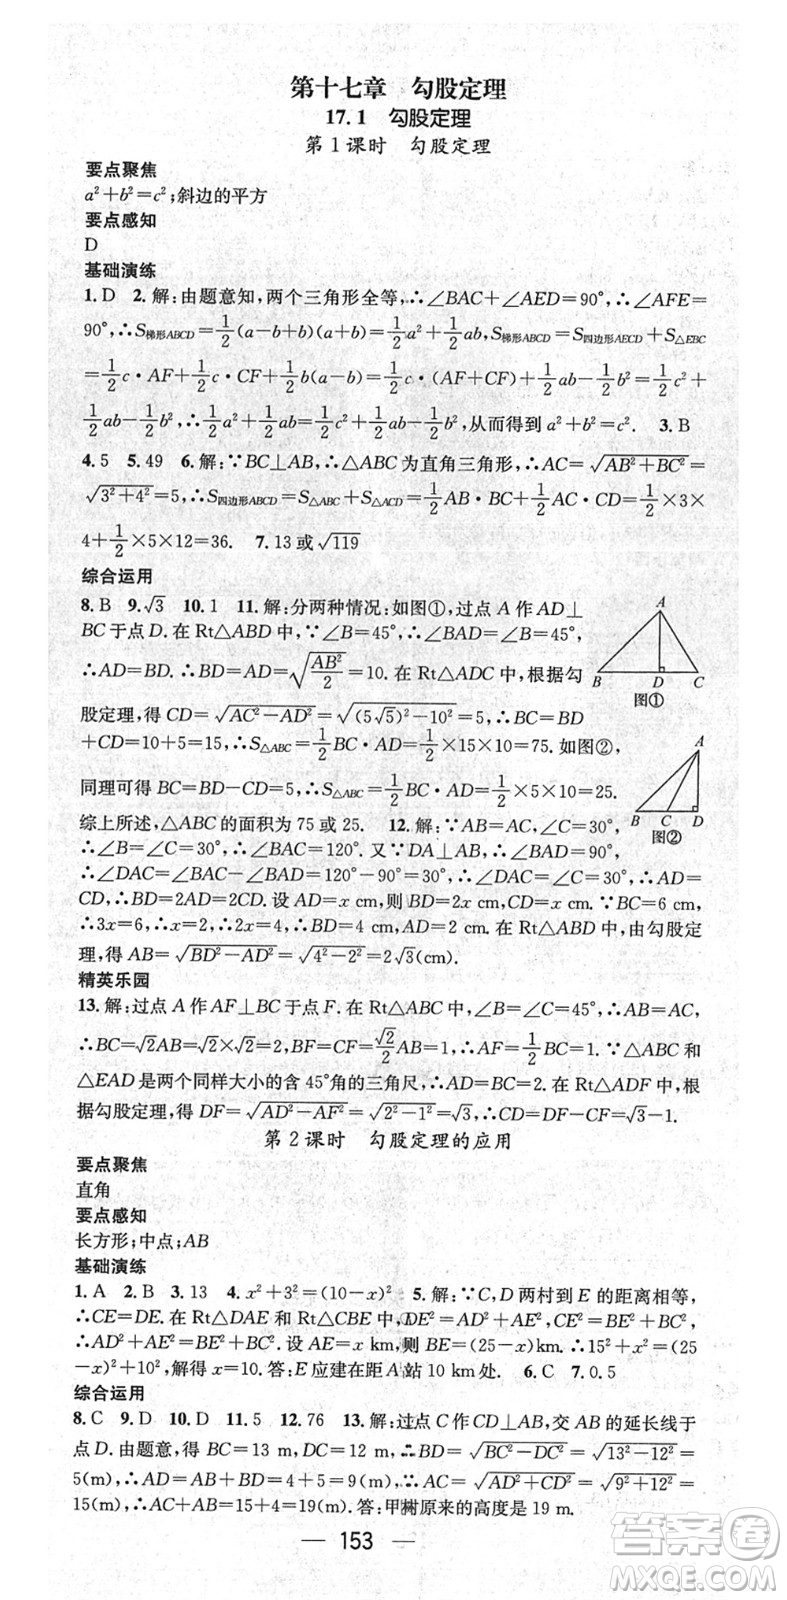 第十七章　勾股定理
17.1　勾股定理
第1课时　勾股定理
要点聚焦
a²+b²=c²;斜边的平方
要点感知
D
基础演练
1.D　2.解:由题意知,两个三角形全等,∴∠BAC+∠AED=90°,∴∠AFE=
90°,∴S梯形ABCD=1/2(a-b+b)(a+b)=1/2a²+1/2ab,S梯形ABCD=S四边形AECD+S△EBC
=1/2c·AF+1/2c·CF+1/2b(a-b)=1/2c·(AF+CF)+1/2ab-1/2b²=1/2c²+
1/2ab-1/2b²,∴1/2a²+1/2ab=1/2c²+1/2ab-1/2b²,从而得到a²+b²=c².　3.B
4.5　5.49　6.解:∵BC⊥AB,∴△ABC为直角三角形,∴AC=√(AB²+BC²)=
√(3²+4²)=5,∴S四边形ABCD=S△ABC+S△ACD=1/2AB·BC+1/2AC·CD=1/2×3×
4+1/2×5×12=36.　7.13或√119
综合运用
8.B　9.√3　10.1　11.解:分两种情况:如图①,过点A作AD⊥
BC于点D.在Rt△ABD中,∵∠B=45°,∴∠BAD=∠B=45°,
∴AD=BD.∴AD=BD=√(AB²/2)=10.在Rt△ADC中,根据勾
股定理,得CD=√(AC²-AD²)=√((5√5)²-10²)=5,∴BC=BD
+CD=10+5=15,∴S△ABC=1/2BC·AD=1/2×15×10=75.如图②,
同理可得BC=BD-CD=5,∴S△ABC=1/2BC·AD=1/2×5×10=25.
综上所述,△ABC的面积为75或25.　12.解:∵AB=AC,∠C=30°,
A
B D C
图①
A
B C D
图②
∴∠B=∠C=30°,∴∠BAC=120°.又∵DA⊥AB,∴∠BAD=90°,
∴∠DAC=∠BAC-∠BAD=120°-90°=30°,∴∠DAC=∠C,∴AD=
CD,∴BD=2AD=2CD.设AD=x cm,则BD=2x cm,CD=x cm.∵BC=6 cm,
∴3x=6,∴x=2,∴BD=2x=4 cm,AD=2 cm.在Rt△ABD中,由勾股定
理,得AB=√(BD²-AD²)=√(4²-2²)=2√3(cm).
精英乐园
13.解:过点A作AF⊥BC于点F.在Rt△ABC中,∠B=∠C=45°,∴AB=AC,
∴BC=√2AB=√2×√2=2,∴BF=CF=√2/2AB=1,∴AF=1/2BC=1.∵△ABC和
△EAD是两个同样大小的含45°角的三角尺,∴AD=BC=2.在Rt△ADF中,根
据勾股定理,得DF=√(AD²-AF²)=√(2²-1²)=√3,∴CD=DF-CF=√3-1.
第2课时　勾股定理的应用
要点聚焦
直角
要点感知
长方形;中点;AB
基础演练
1.A　2.B　3.13　4.x²+3²=(10-x)²　5.解:∵C,D两村到E的距离相等,
∴CE=DE.在Rt△DAE和Rt△CBE中,DE²=AD²+AE²,CE²=BE²+BC²,
∴AD²+AE²=BE²+BC².设AE=x km,则BE=(25-x)km.∴15²+x²=(25
-x)²+10²,解得x=10.答:E应建在距A站10 km处.　6.C　7.0.5
综合运用
8.C　9.D　10.D　11.5　12.76　13.解:过点C作CD⊥AB,交AB的延长线于
点D.由题意,得BC=13 m,DC=12 m,∴BD=√(BC²-DC²)=√(13²-12²)=
5(m),∴AD=AB+BD=4+5=9(m),∴AC=√(AD²+CD²)=√(9²+12²)=
15(m),∴AC+AB=15+4=19(m).答:甲树原来的高度是19 m.
— 153 —
答案圈
MXQE.COM